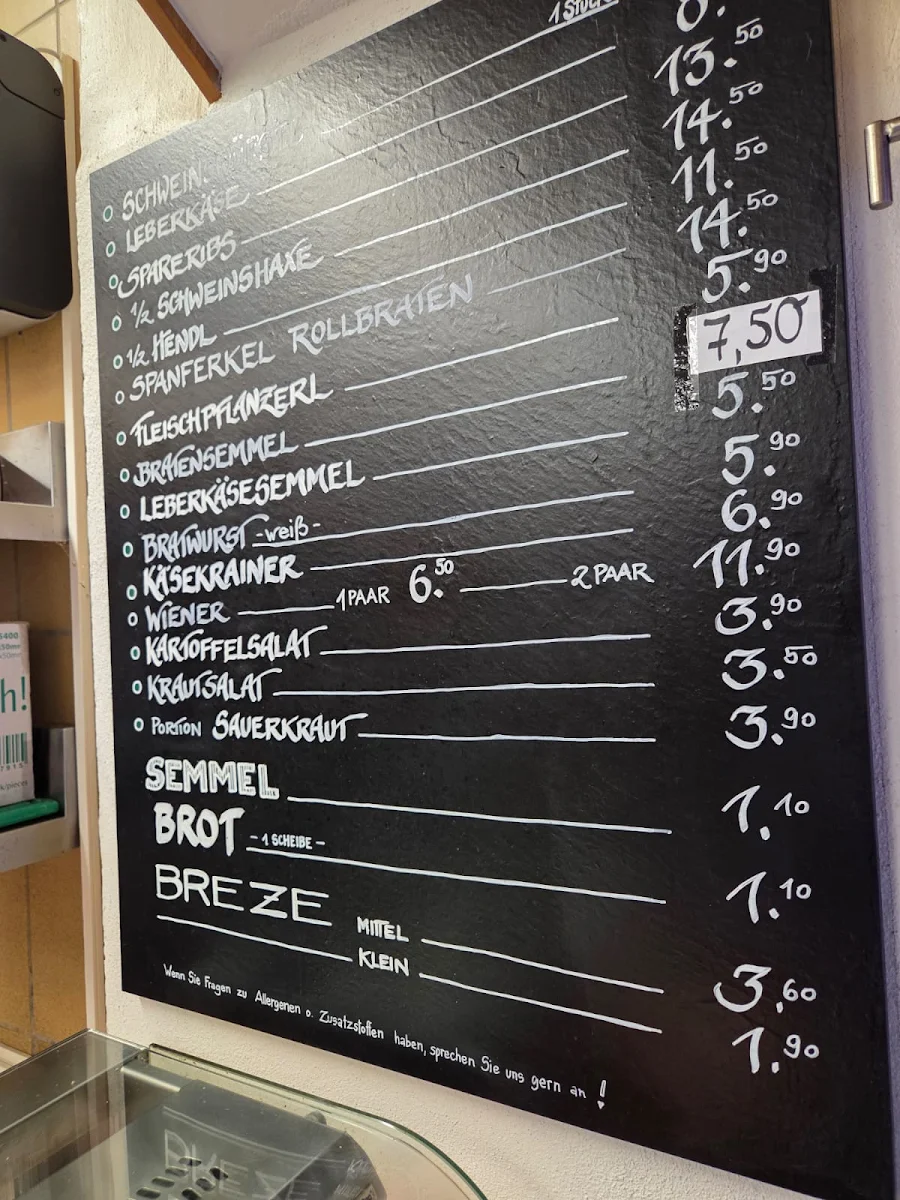 1 Stück
SCHWEIN
LEBERKÄSE
SPARERIBS 13.50
1/2 SCHWEINSHAXE 14.50
1/2 HENDL 11.50
SPANFERKEL ROLLBRATEN 14.50
FLEISCHPFLANZERL 5.90
BRATENSEMMEL 7,50
LEBERKÄSESEMMEL 5.50
BRATWURST -weiß- 5.90
KÄSEKRAINER 6.90
WIENER 1 PAAR 6.50 2 PAAR 11.90
KARTOFFELSALAT 3.90
KRAUTSALAT 3.50
PORTION SAUERKRAUT 3.90
SEMMEL 1.10
BROT - 1 SCHEIBE - 1.10
BREZE MITTEL 3,60
KLEIN 1.90
Wenn Sie Fragen zu Allergenen o. Zusatzstoffen haben, sprechen Sie uns gern an !